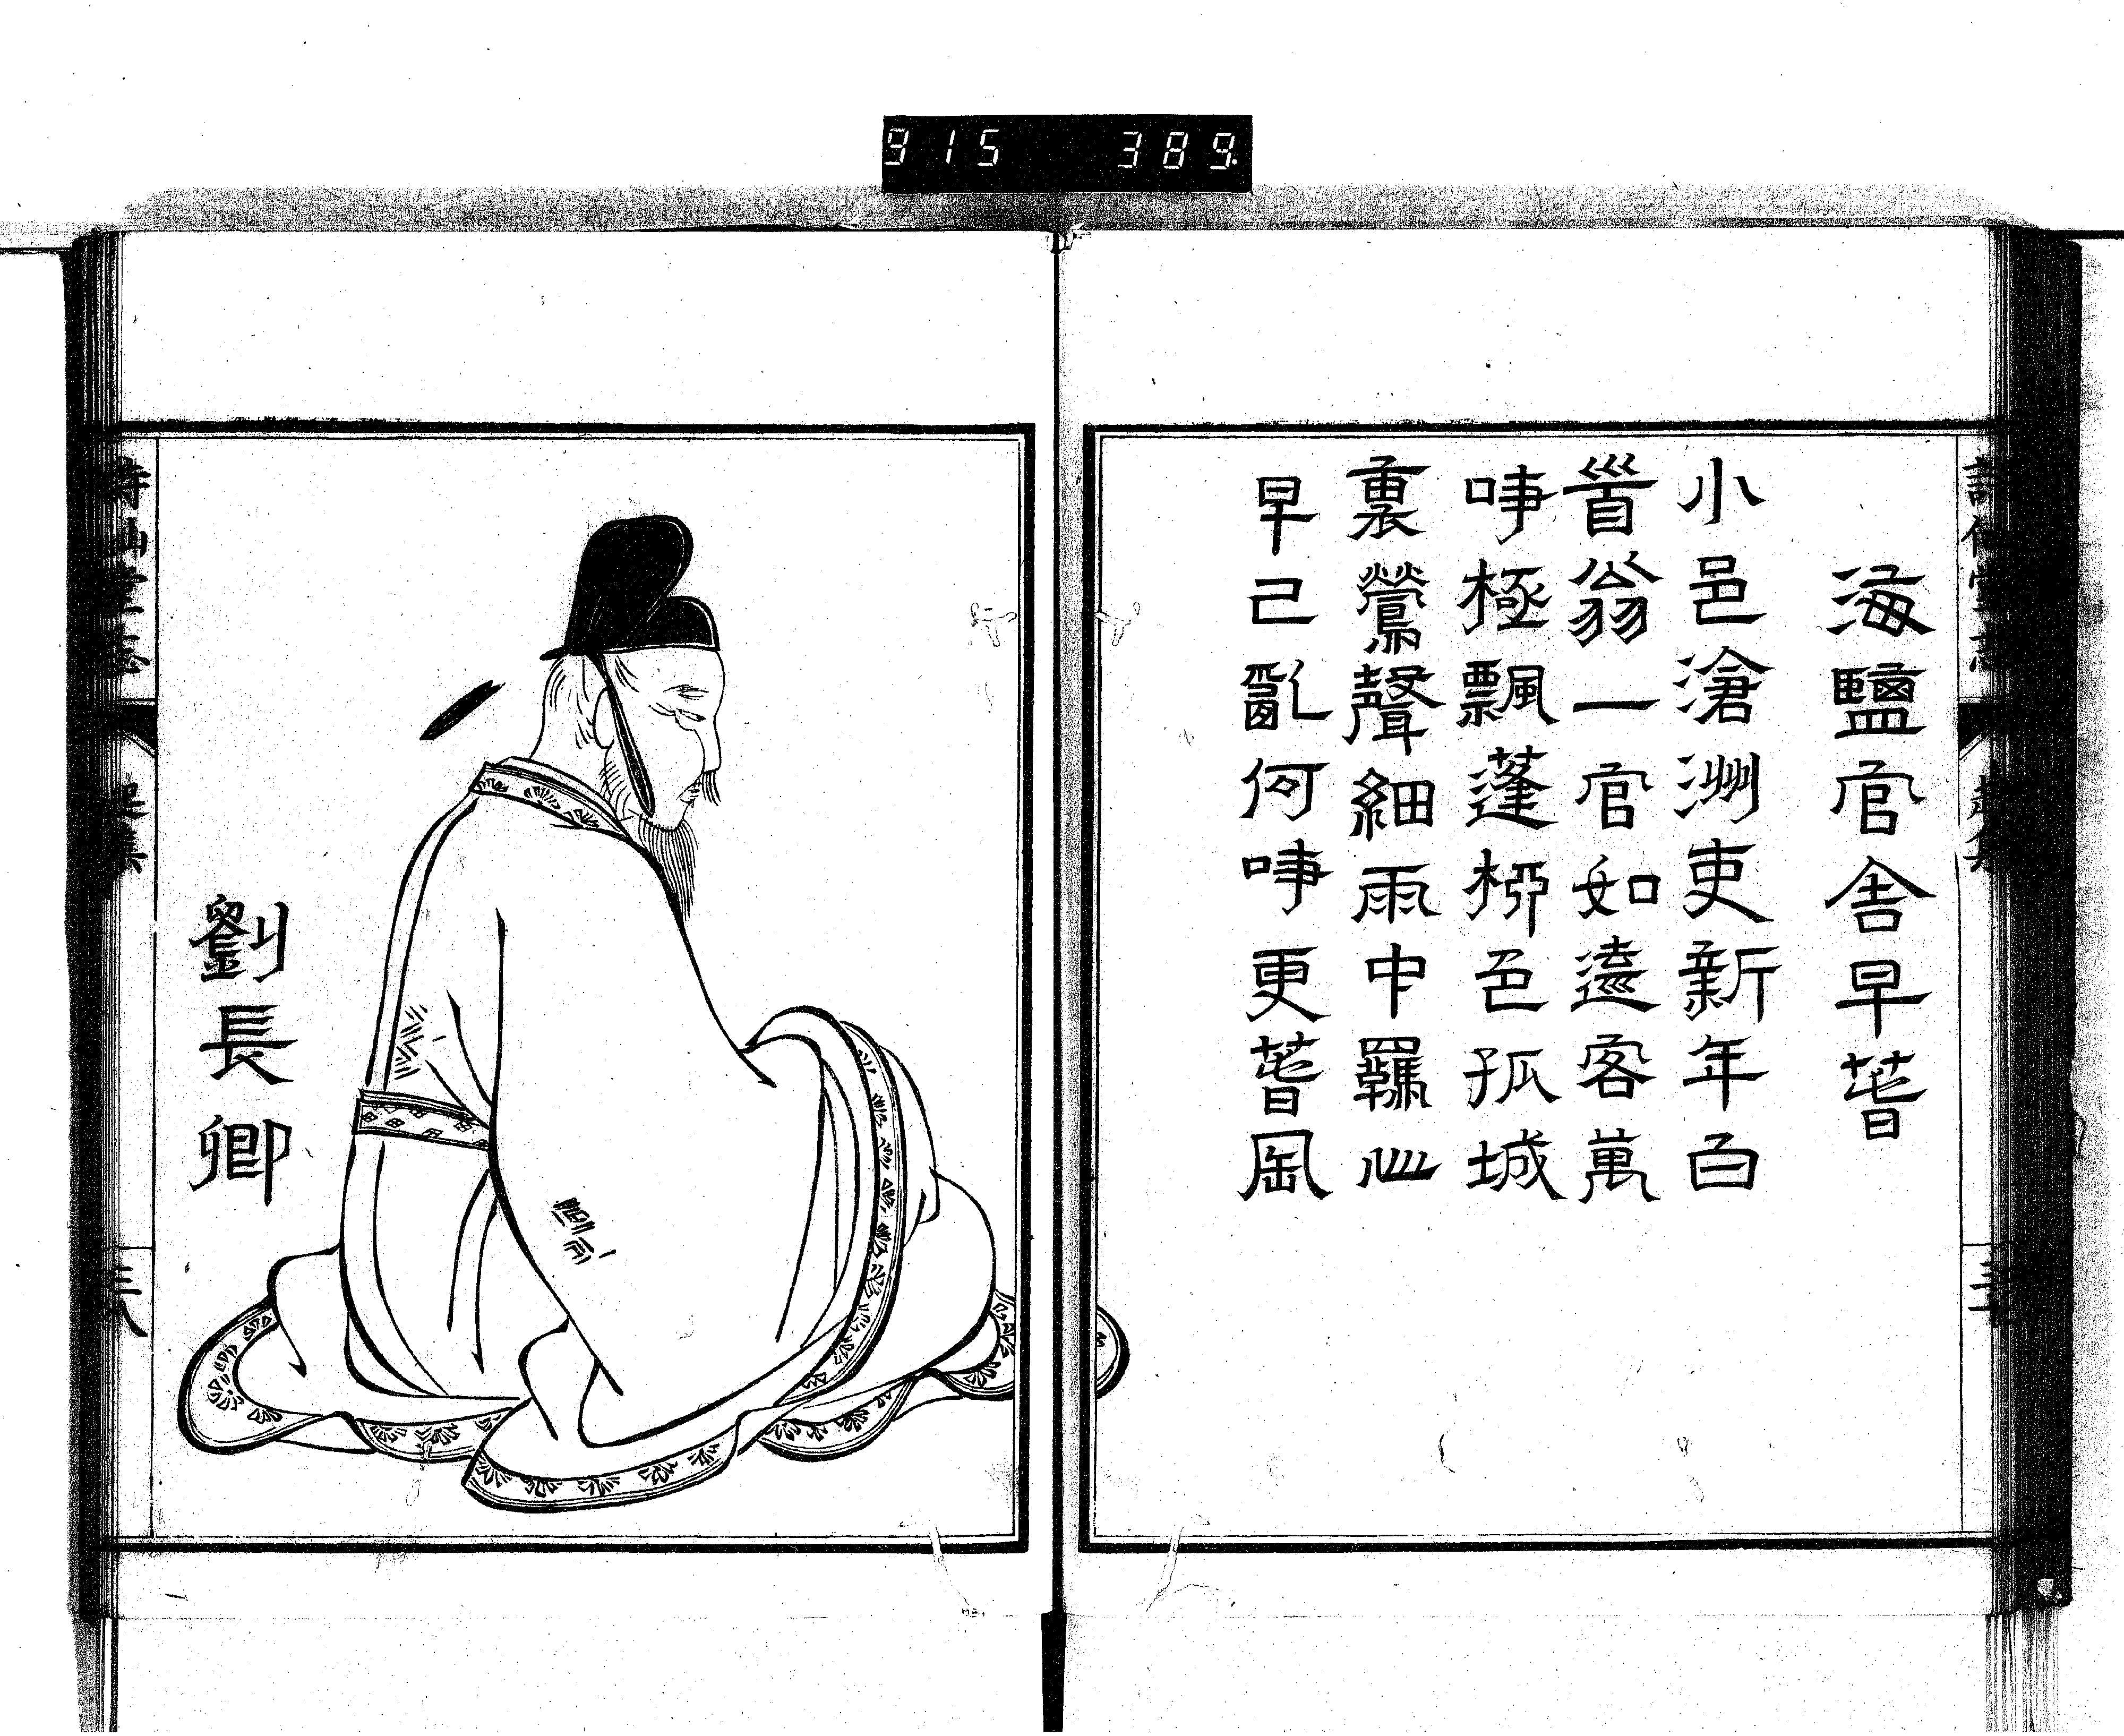 915 389.
詩仙堂志
海鹽官舍早萅
小邑滄洲吏新年白
𩠐翁一官如遠客萬
事極飄蓬柳色孤城
裏鶯聲細雨中羈心
早已亂何事更萅風
劉長卿
詩仙堂志
三八